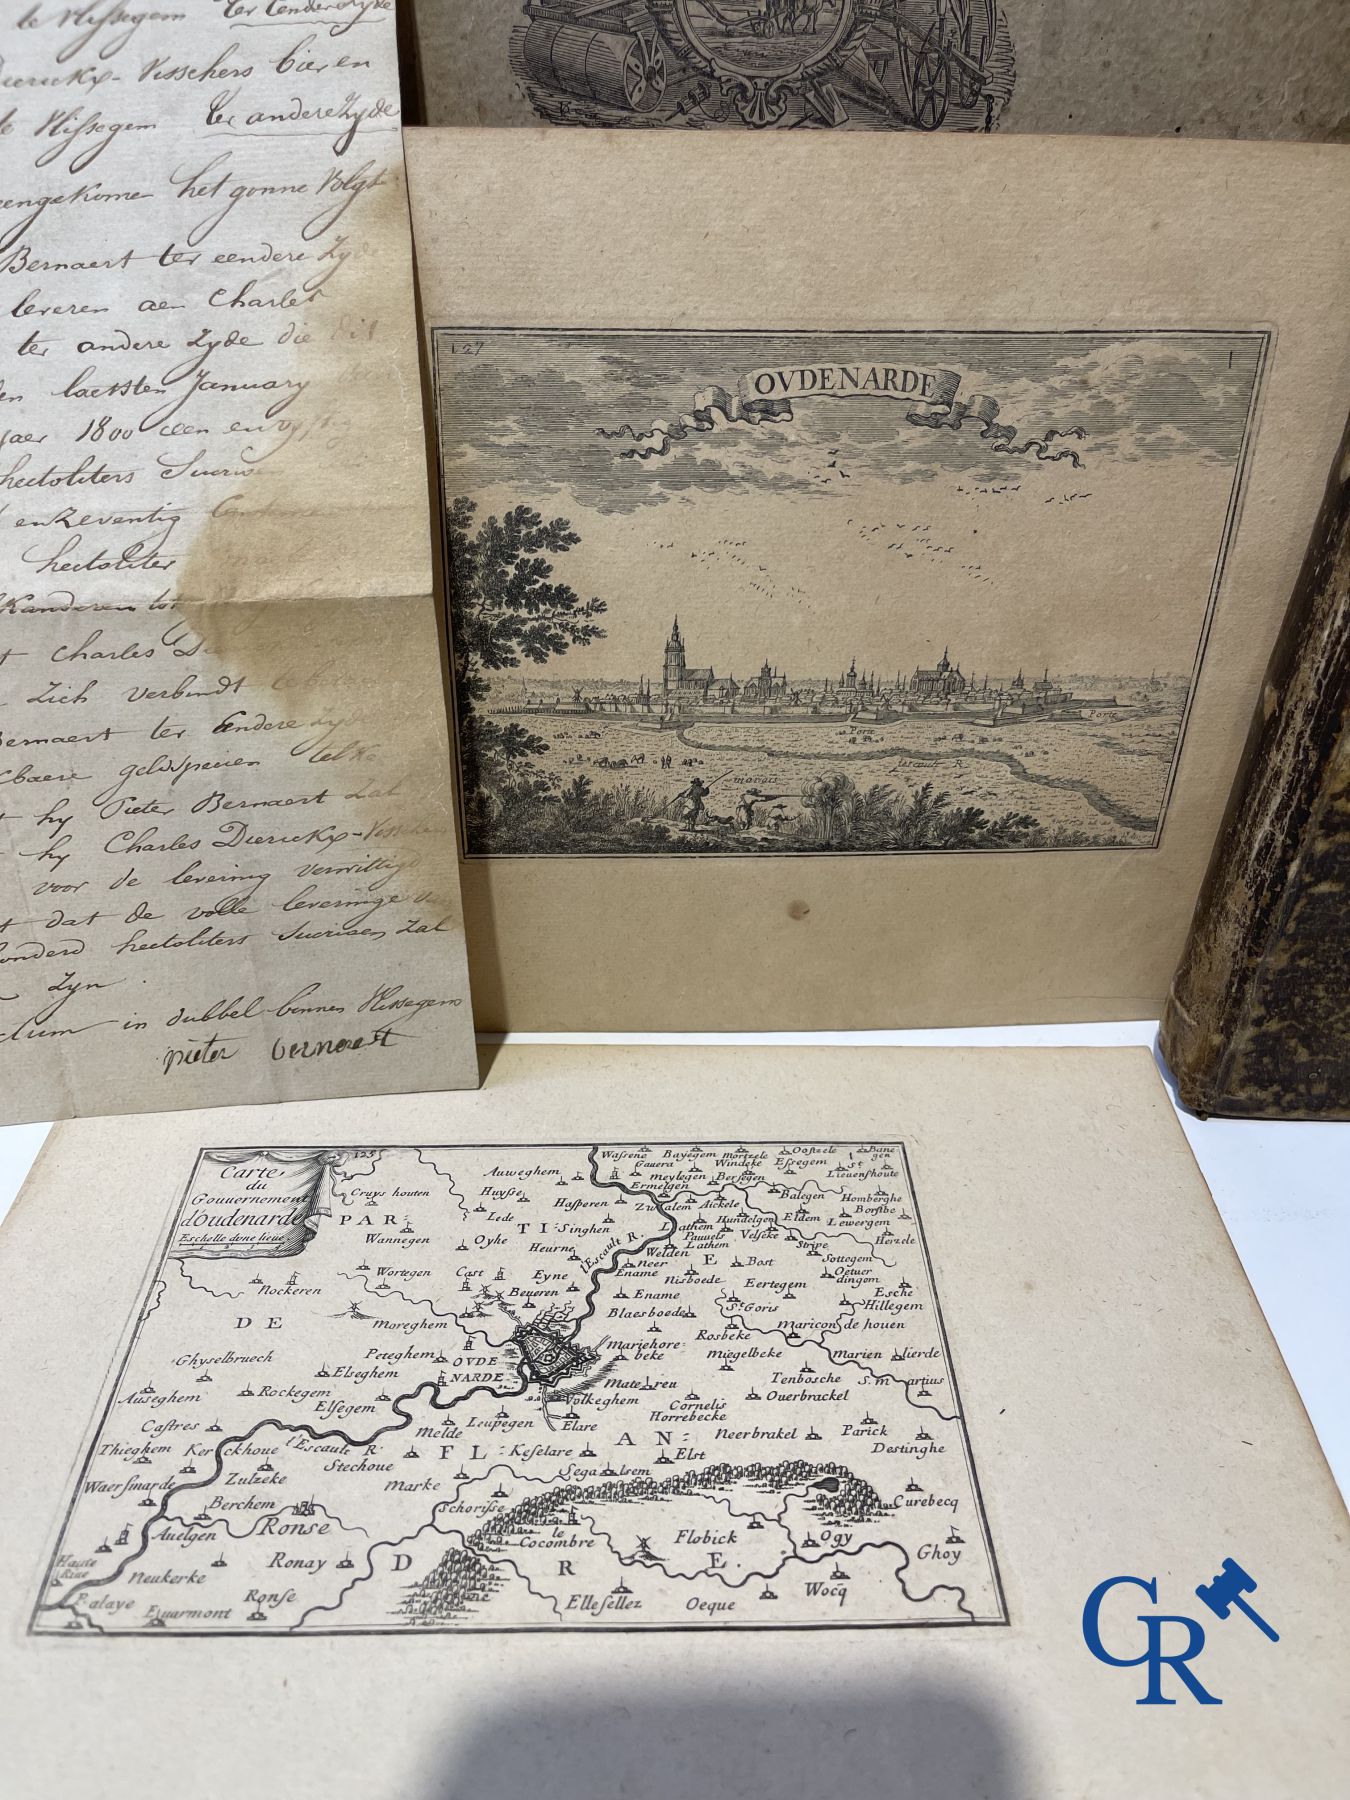 te Hissegem Ter eendere Zyde
Diericky-Visschers bier en
te Hissegem Ter andere Zyde
eengekome het gonne Volgt
Bernaert ter eendere Zyde
leveren aen Charles
ter andere Zyde die
den laetsten January
Jaer 1800 een en
hectoliters Sucrioen
en Zeventig
hectoliter
Kanderen tot
Charles
Zich verbindt
Bernaert ter Eendere Zyde
cbaere geldspecien
hy Pieter Bernaert Zal
hy Charles Diericky-Visschers
voor de levering verwittigd
dat de volle leveringe
honderd hectoliters Sucrioen Zal
Zyn
in dubbel binnen Hissegem
pieter bernaert
127
1
OVDENARDE
Porte
Porte
lescault R.
marais
125
Carte
du
Gouvernement
d'Oudenarde
Eschelle dune lieue
Cruys houten
Auweghem
Wafrene
Bayegem
mortzele
Oostzele
Bane
gen
Gauera
Windeke
Essegem
St
Lieuenshoute
Huysse
Hasperen
Ermelgem
meylegen
Bersegen
Balegen
Homberghe
PAR:
Lede
Zwsalem
Aickele
Borsbe
Wannegen
Oyhe
TI:
Singhen
Lathem
Hundelgen
Eldem
Lewergem
Heurne
l'Escault R.
Pauuels
Lathem
Velseke
Stripe
Herzele
Welden
E
Bost
Sottegem
Wortegen
Cast
Eyne
neer
Ename
Nisboede
Oetuer
dingem
Nockeren
Beueren
Ename
Eertegem
Esche
DE
Moreghem
Blaesboede
St Goris
Hillegem
Rosbeke
maricon de houen
Ghyselbruech
Peteghem
OVDE
NARDE
Mariehore:
beke
miegelbeke
marien lierde
Elseghem
Tenbosche
S. martius
Auseghem
Rockegem
Elsegem
Volkeghem
Cornelis
Horrebecke
Ouerbrackel
Castres
Melde
Leupegen
Elare
Neerbrakel
Parick
Thieghem
Kerckhoue
l'Escault R.
FL:
Keselare
AN:
Elst
Destinghe
Stechoue
Waersmarde
Zulzeke
Marke
Segalsem
Berchem
Schorisse
Curebecq
Auelgen
Ronse
le
Cocombre
Flobick
Ogy
Haute
Riue
Ronay
D
R
E.
Ghoy
Neukerke
Ronse
Ellesellez
Oeque
Wocq
Balaye
Quarmont
GR